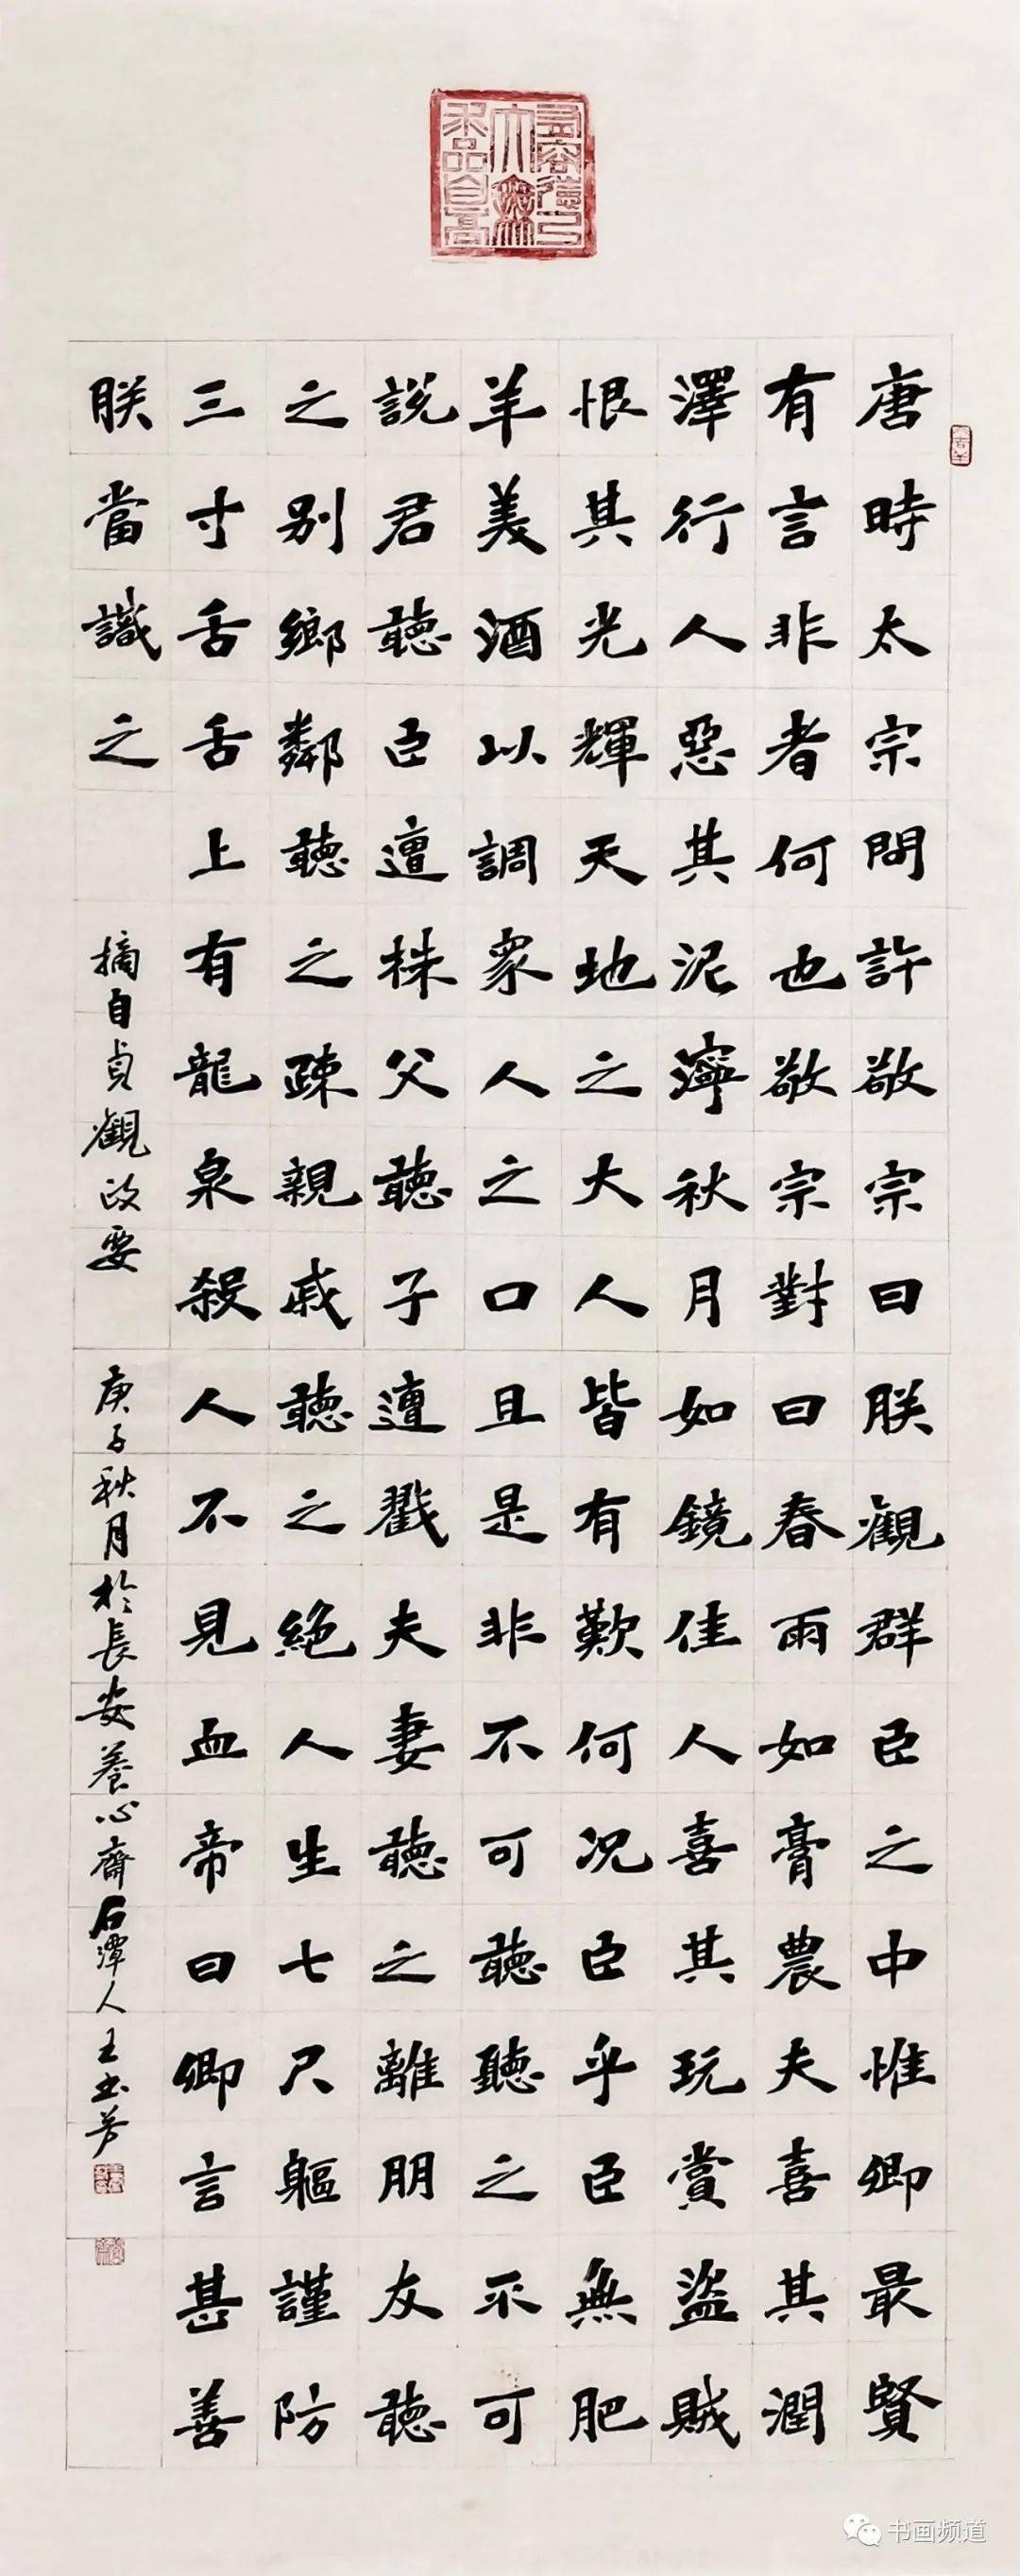 有容德乃
大無
求品自高
唐時太宗問許敬宗曰朕觀群臣之中惟卿最賢
有言非者何也敬宗對曰春雨如膏農夫喜其潤
澤行人惡其泥濘秋月如鏡佳人喜其玩賞盜賊
恨其光輝天地之大人皆有歎何况臣乎臣無肥
羊美酒以調衆人之口且是非不可聽聽之不可
説君聽臣遭株父聽子遭戮夫妻聽之離朋友聽
之别鄉鄰聽之疎親戚聽之絕人生七尺軀謹防
三寸舌舌上有龍泉殺人不見血帝曰卿言甚善
朕當識之
摘自貞觀政要
庚子秋月於長安養心齋石潭人王书芳
书画频道